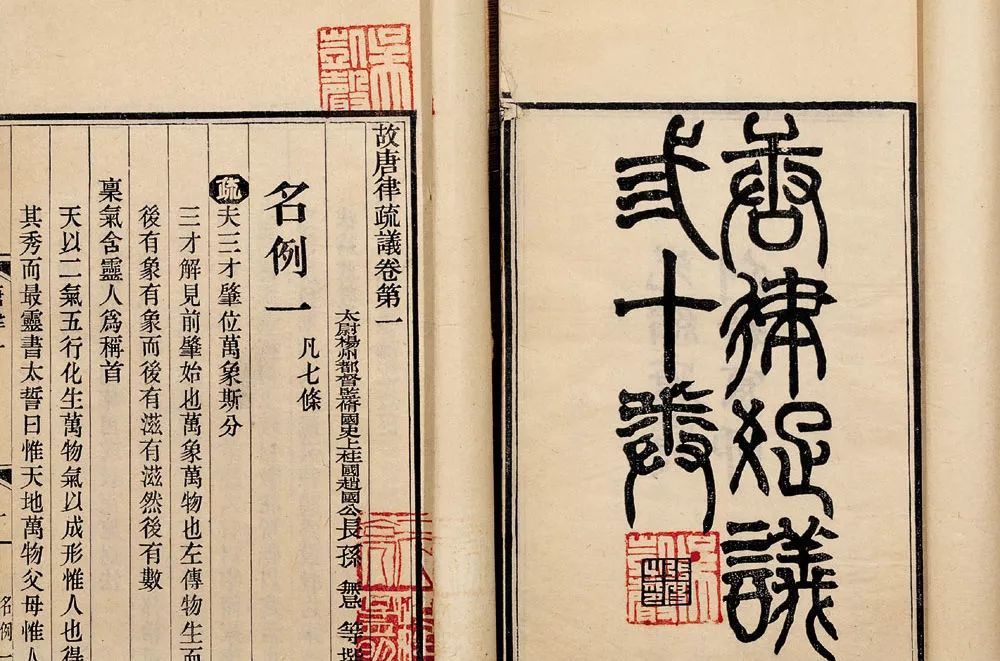 唐律疏議
弎十卷
吳凱聲
故唐律疏議卷第一
太尉楊州都督監脩國史上柱國趙國公長孫無忌等撰
名例一 凡七條
疏夫三才肇位萬象斯分
三才解見前肇始也萬象萬物也左傳物生而
後有象有象而後有滋有滋然後有數
稟氣含靈人爲稱首
天以二氣五行化生萬物氣以成形惟人也得
其秀而最靈書太誓曰惟天地萬物父母惟人
名例一
吳凱聲